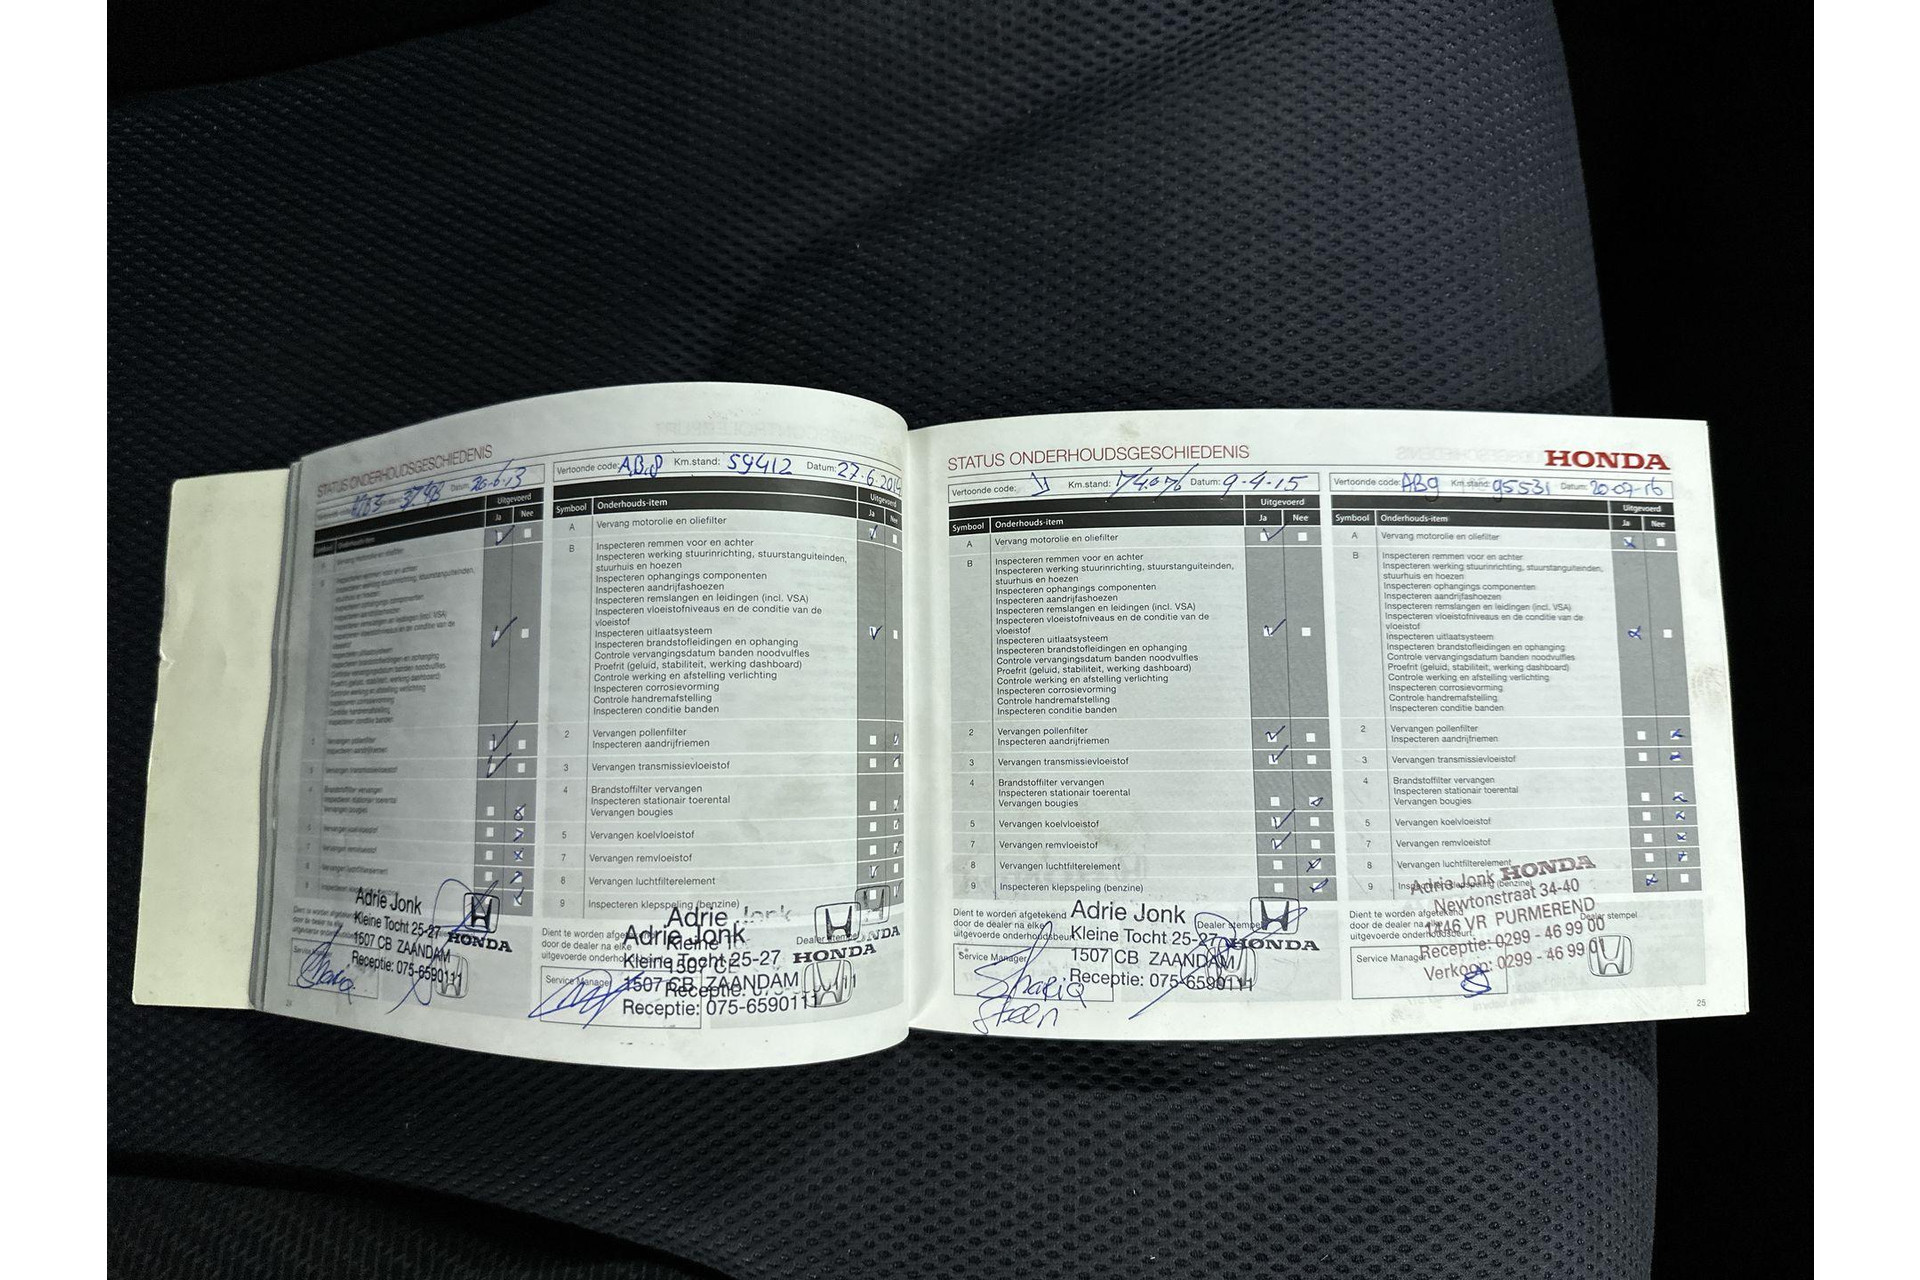 STATUS ONDERHOUDSGESCHIEDENIS
Datum: 26-6-13
Uitgevoerd
Ja Nee
Symbool Onderhouds-item
Vervang motorolie en oliefilter
Inspecteren remmen voor en achter
Inspecteren werking stuurinrichting, stuurstanguiteinden,
stuurhuis en hoezen
Inspecteren ophangings componenten
Inspecteren aandrijfashoezen
Inspecteren remslangen en leidingen (incl. VSA)
Inspecteren vloeistofniveaus en de conditie van de
vloeistof
Inspecteren uitlaatsysteem
Inspecteren brandstofleidingen en ophanging
Controle vervangingsdatum banden noodvulfles
Proefrit (geluid, stabiliteit, werking dashboard)
Controle werking en afstelling verlichting
Inspecteren corrosievorming
Controle handremafstelling
Inspecteren conditie banden
Vervangen pollenfilter
Inspecteren aandrijfriemen
Vervangen transmissievloeistof
Brandstoffilter vervangen
Inspecteren stationair toerental
Vervangen bougies
Vervangen koelvloeistof
Vervangen remvloeistof
Vervangen luchtfilterelement
Adrie Jonk
Kleine Tocht 25-27
1507 CB ZAANDAM
Receptie: 075-6590111
HONDA
Vertoonde code: AB8 Km.stand: 59412 Datum: 27-6-2014
Uitgevoerd
Symbool Onderhouds-item Ja Nee
A Vervang motorolie en oliefilter
B Inspecteren remmen voor en achter
Inspecteren werking stuurinrichting, stuurstanguiteinden,
stuurhuis en hoezen
Inspecteren ophangings componenten
Inspecteren aandrijfashoezen
Inspecteren remslangen en leidingen (incl. VSA)
Inspecteren vloeistofniveaus en de conditie van de
vloeistof
Inspecteren uitlaatsysteem
Inspecteren brandstofleidingen en ophanging
Controle vervangingsdatum banden noodvulfles
Proefrit (geluid, stabiliteit, werking dashboard)
Controle werking en afstelling verlichting
Inspecteren corrosievorming
Controle handremafstelling
Inspecteren conditie banden
2 Vervangen pollenfilter
Inspecteren aandrijfriemen
3 Vervangen transmissievloeistof
4 Brandstoffilter vervangen
Inspecteren stationair toerental
Vervangen bougies
5 Vervangen koelvloeistof
7 Vervangen remvloeistof
8 Vervangen luchtfilterelement
9 Inspecteren klepspeling (benzine)
Dient te worden afgetekend
door de dealer na elke
uitgevoerde
Service Manager
Dealer stempel
Adrie Jonk
Adrie Jonk
Kleine Tocht 25-27
1507 CB ZAANDAM
Receptie: 075-6590111
HONDA
STATUS ONDERHOUDSGESCHIEDENIS
Vertoonde code: Km.stand: 74076 Datum: 9-4-15
Uitgevoerd
Symbool Onderhouds-item Ja Nee
A Vervang motorolie en oliefilter
B Inspecteren remmen voor en achter
Inspecteren werking stuurinrichting, stuurstanguiteinden,
stuurhuis en hoezen
Inspecteren ophangings componenten
Inspecteren aandrijfashoezen
Inspecteren remslangen en leidingen (incl. VSA)
Inspecteren vloeistofniveaus en de conditie van de
vloeistof
Inspecteren uitlaatsysteem
Inspecteren brandstofleidingen en ophanging
Controle vervangingsdatum banden noodvulfles
Proefrit (geluid, stabiliteit, werking dashboard)
Controle werking en afstelling verlichting
Inspecteren corrosievorming
Controle handremafstelling
Inspecteren conditie banden
2 Vervangen pollenfilter
Inspecteren aandrijfriemen
3 Vervangen transmissievloeistof
4 Brandstoffilter vervangen
Inspecteren stationair toerental
Vervangen bougies
5 Vervangen koelvloeistof
7 Vervangen remvloeistof
8 Vervangen luchtfilterelement
9 Inspecteren klepspeling (benzine)
Dient te worden afgetekend
door de dealer na elke
uitgevoerde onderhoudsbeurt
Service Manager
Dealer stempel
Adrie Jonk
Kleine Tocht 25-27
1507 CB ZAANDAM
Receptie: 075-6590111
HONDA
HONDA
Vertoonde code: AB9 Km.stand: 95531 Datum: 20-07-16
Uitgevoerd
Symbool Onderhouds-item Ja Nee
A Vervang motorolie en oliefilter
B Inspecteren remmen voor en achter
Inspecteren werking stuurinrichting, stuurstanguiteinden,
stuurhuis en hoezen
Inspecteren ophangings componenten
Inspecteren aandrijfashoezen
Inspecteren remslangen en leidingen (incl. VSA)
Inspecteren vloeistofniveaus en de conditie van de
vloeistof
Inspecteren uitlaatsysteem
Inspecteren brandstofleidingen en ophanging
Controle vervangingsdatum banden noodvulfles
Proefrit (geluid, stabiliteit, werking dashboard)
Controle werking en afstelling verlichting
Inspecteren corrosievorming
Controle handremafstelling
Inspecteren conditie banden
2 Vervangen pollenfilter
Inspecteren aandrijfriemen
3 Vervangen transmissievloeistof
4 Brandstoffilter vervangen
Inspecteren stationair toerental
Vervangen bougies
5 Vervangen koelvloeistof
7 Vervangen remvloeistof
8 Vervangen luchtfilterelement
9 Inspecteren klepspeling (benzine)
Dient te worden afgetekend
door de dealer na elke
uitgevoerde onderhoudsbeurt
Service Manager
Dealer stempel
Adrie Jonk HONDA
Newtonstraat 34-40
1446 VR PURMEREND
Receptie: 0299 - 46 99 00
Verkoop: 0299 - 46 99 01
25